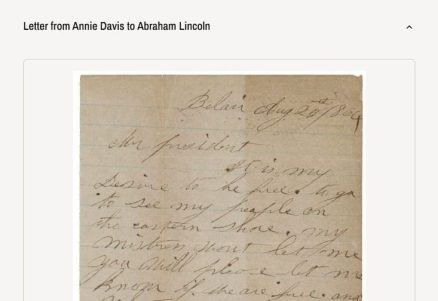 Letter from Annie Davis to Abraham Lincoln
Belair Aug 25th 1864
Mr president
It is my
Desire to be free. to go
to see my people on
the eastern shore. my
mistress wont let me
you will please let me
know if we are free. and